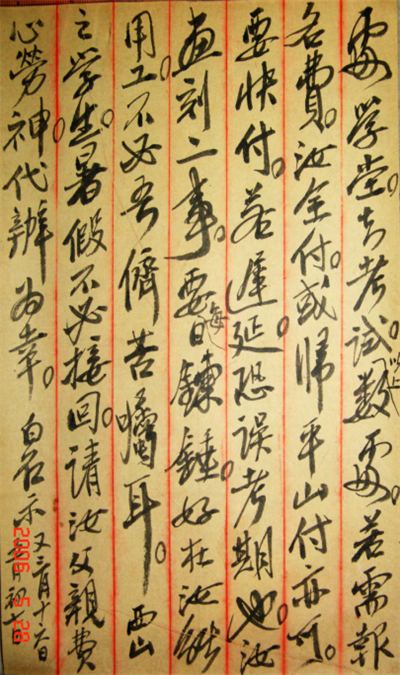 处。学堂去考试。数(以上)处。若需報
各费。汝全付。或归平山付亦可。
要快付。若遲延。恐误考期也。汝
画刻二事。要晦日鍊錘。好在汝能
用工。不必吾儕苦嘱耳。西山
之学生。暑假不必接回。请汝父親费
心劳神代辦为幸。白石示 又三月十六日
2006 5 28